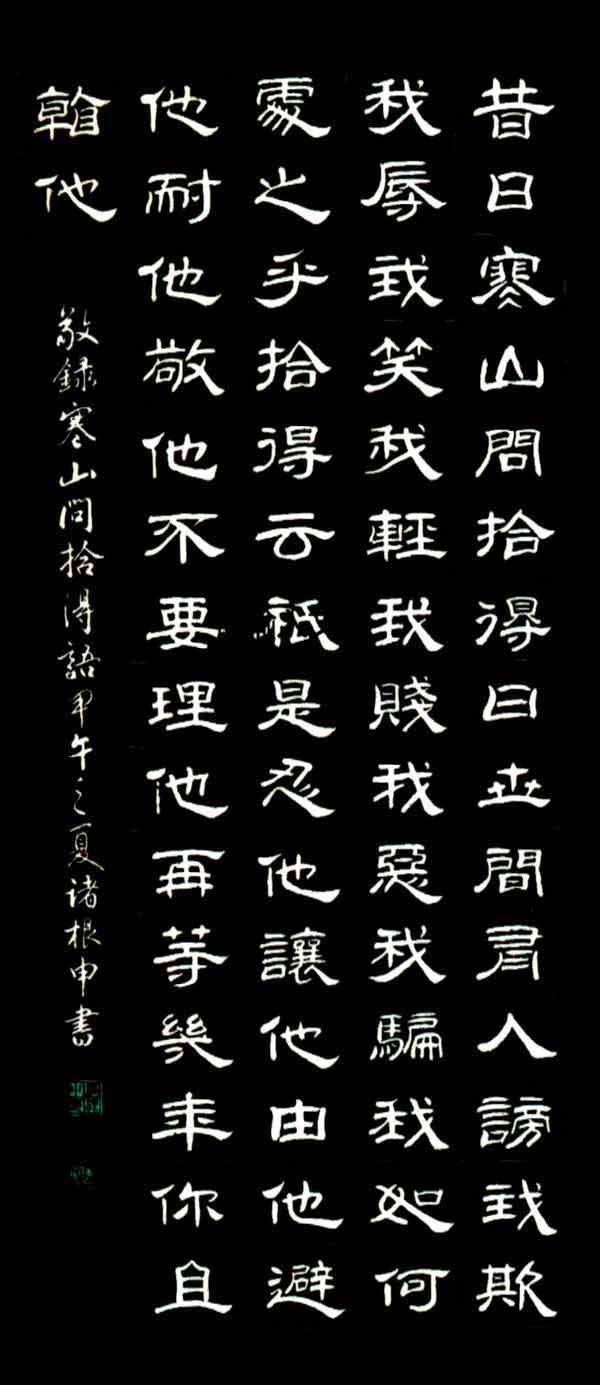 昔日寒山問拾得曰世間有人謗我欺
我辱我笑我輕我賤我惡我騙我如何
處之乎拾得云祇是忍他讓他由他避
他耐他敬他不要理他再等幾年你且
看他
敬録寒山問拾得語甲午之夏诸根申書